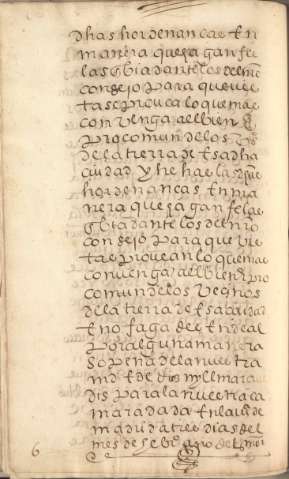 dhas hordenancas En
manera que hagan fee
las Enbia dante los del nro
consejo para que vis
tas se provea lo que mas
convenga al bien E
procomun de los vºs
de la tierra de Esa dha
ciudad y he has las dhas
hordenancas En ma
nera que hagan fe las
Enbia dante los del nro
consejo para que vis
tas provean lo que mas
convenga al bien E pro
comun de los vecinos
de la tierra de Esa ciudad
E no fagades Ende al
por alguna manera
so pena de la nuestra
md E de dies myll mara
dis para la nuestra ca
mara dada En la villa de
madrid a tres dias del
mes de año de
6